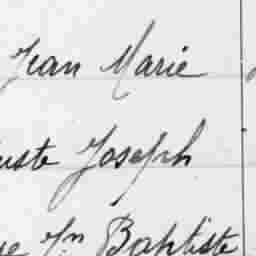 Jean Marie
uste Joseph
ue Jn Baptiste